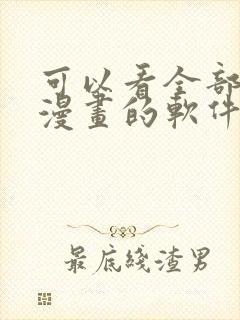 可以看全部
漫畫的軟件
最底綫渣男